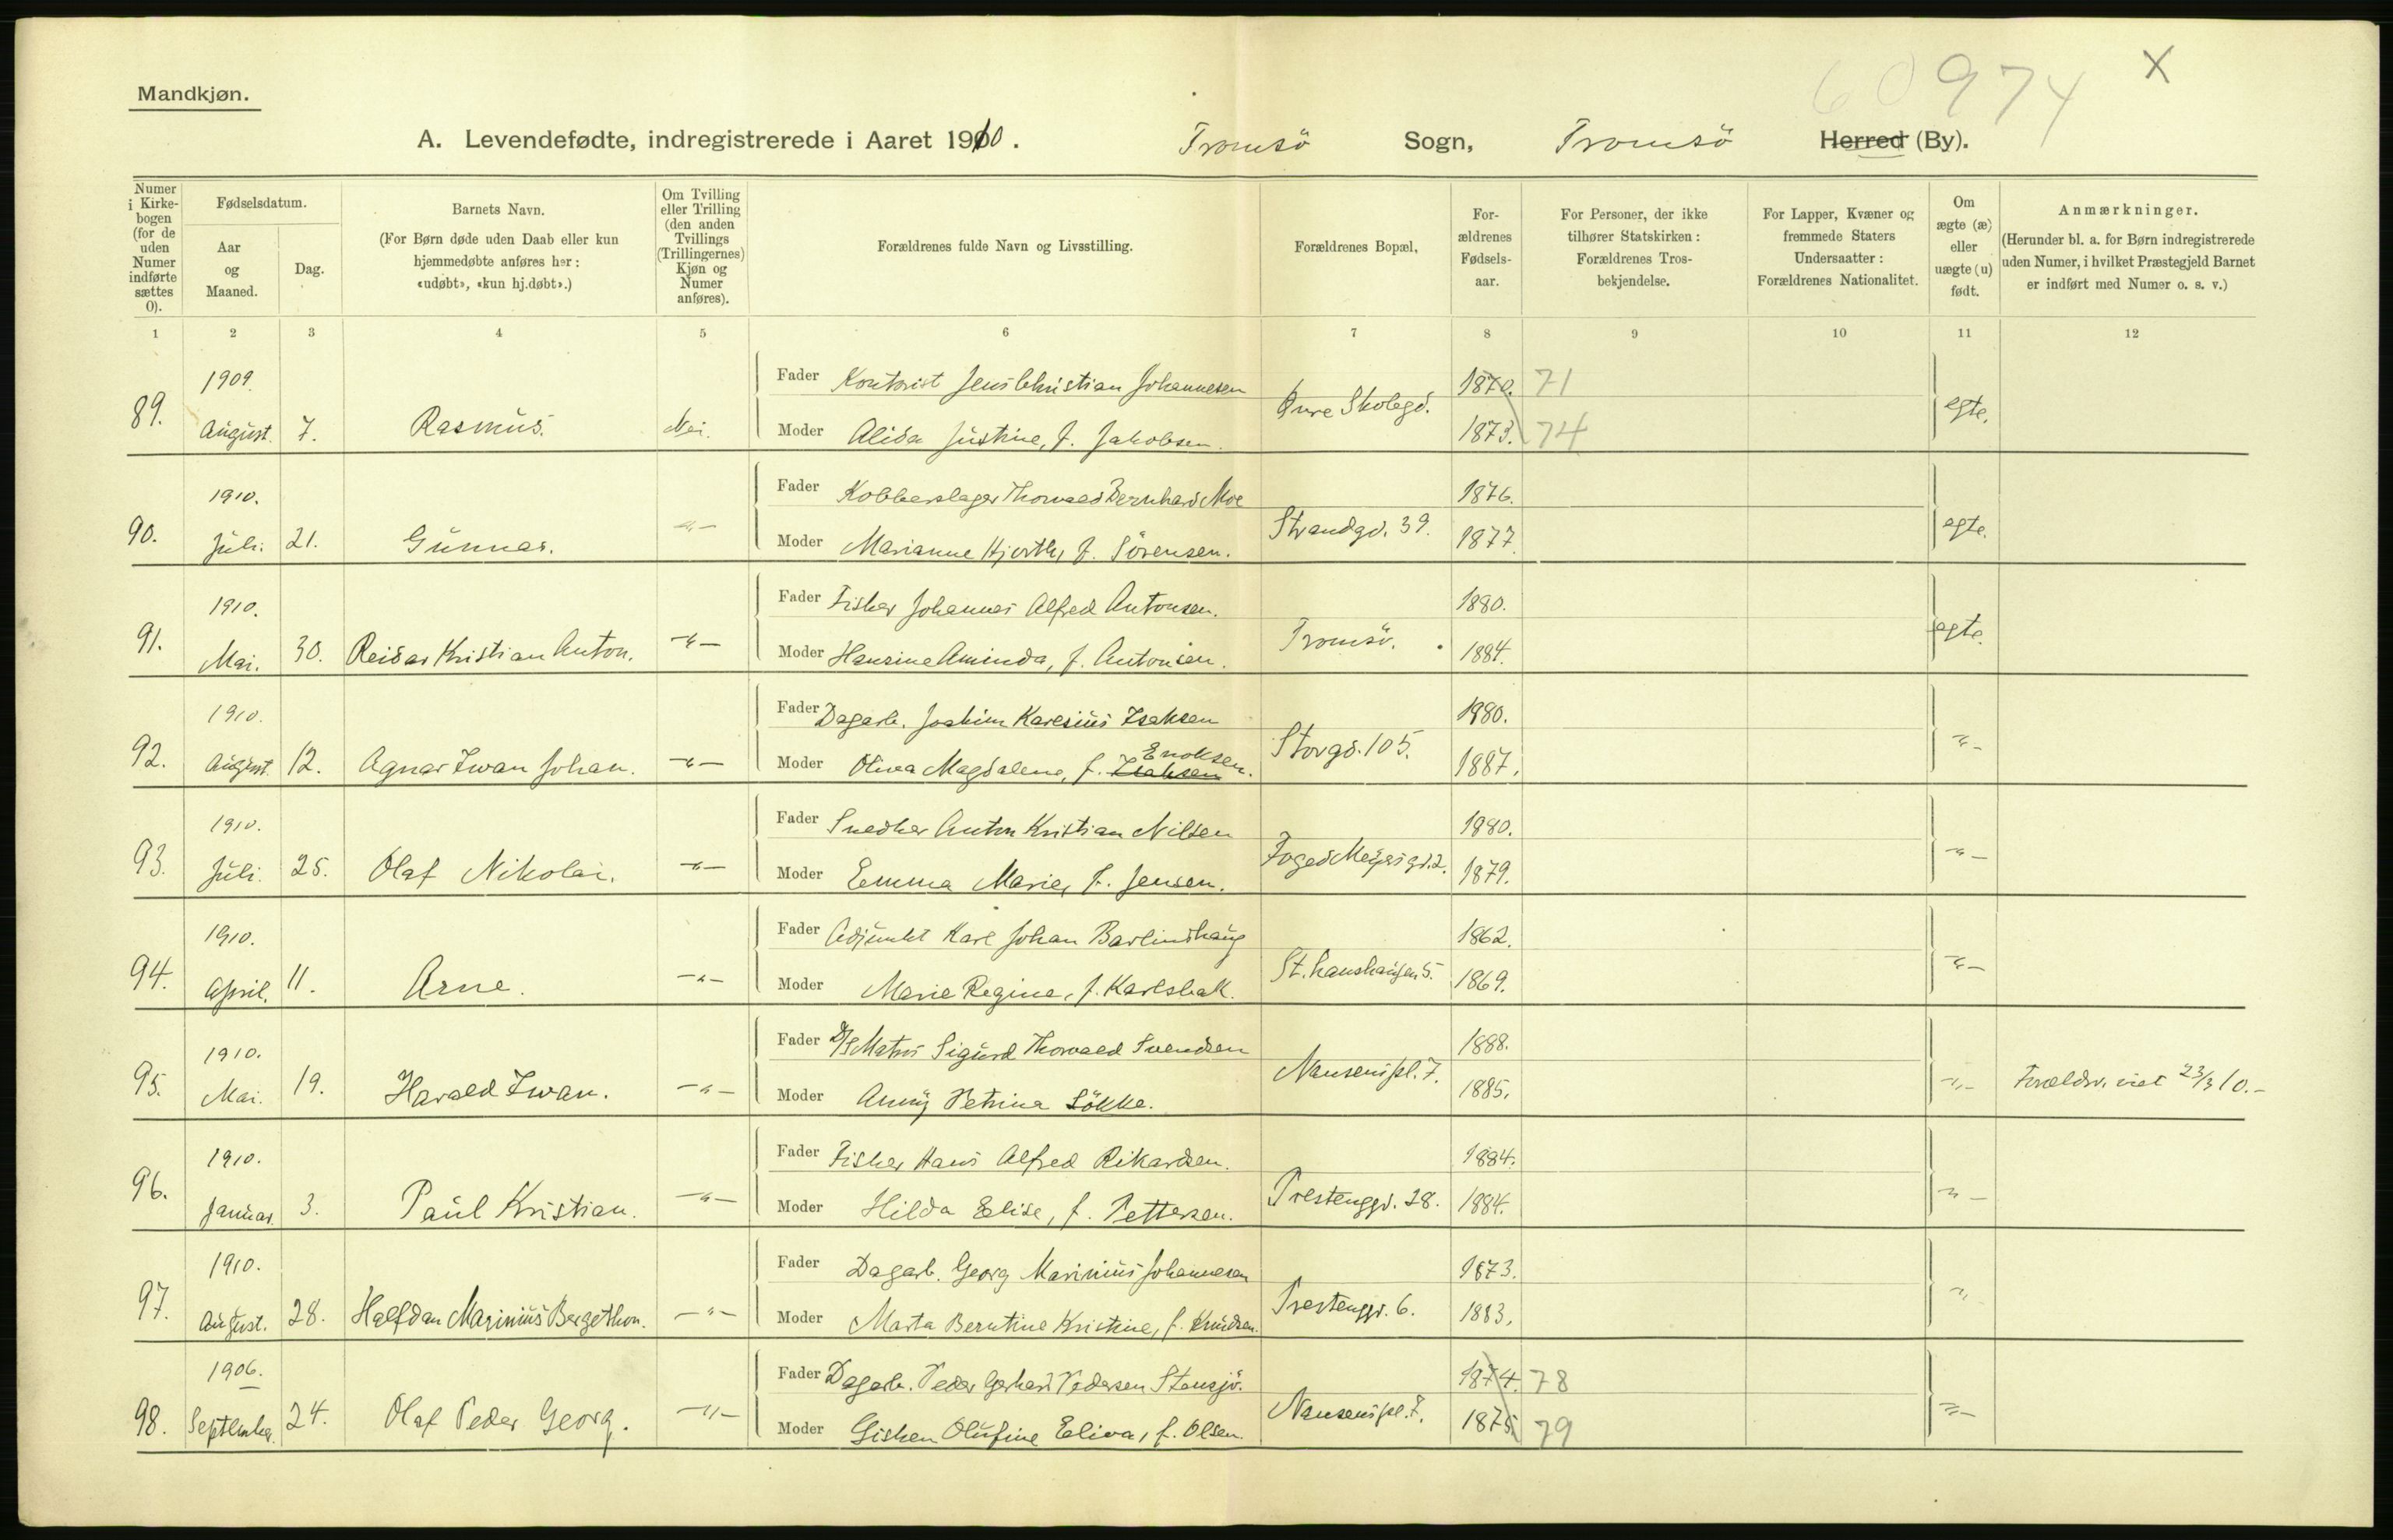 60974 X
Mandkjøn.
A. Levendefødte, indregistrerede i Aaret 1910. Tromsö Sogn, Tromsö Herred (By).
Numer i Kirkebogen (for de uden Numer indførte sættes 0).
Fødselsdatum.
Aar og Maaned.
Dag.
Barnets Navn.
(For Børn døde uden Daab eller kun hjemmedøbte anføres her: «udøbt», «kun hj.døbt».)
Om Tvilling eller Trilling (den anden Tvillings (Trillingernes) Kjøn og Numer anføres).
Forældrenes fulde Navn og Livsstilling.
Forældrenes Bopæl,
Forældrenes Fødselsaar.
For Personer, der ikke tilhører Statskirken: Forældrenes Trosbekjendelse.
For Lapper, Kvæner og fremmede Staters Undersaatter: Forældrenes Nationalitet.
Om ægte (æ) eller uægte (u) født.
Anmærkninger.
(Herunder bl. a. for Børn indregistrerede uden Numer, i hvilket Præstegjeld Barnet er indført med Numer o. s. v.)
1 2 3 4 5 6 7 8 9 10 11 12
1909. Fader Kontorist Jens Christian Johannesen 1870. 71
89. August. 7. Rasmus. Nei. Moder Alida Justine, f. Jakobsen. Övre Skolegd. 1873. 74 egte.
1910. Fader Kobberslager Thorvald Bernhard Moe 1876.
90. Juli. 21. Gunnar. -"- Moder Marianne Hjorth, f. Sörensen. Strandgd. 39. 1877. egte.
1910. Fader Fisker Johannes Alfred Antonsen. 1880.
91. Mai. 30. Reidar Kristian Anton. -"- Moder Hansine Aminda, f. Antonsen. Tromsö. 1884. egte.
1910. Fader Dagarb. Joakim Karesius Isaksen 1880.
92. August. 12. Agnar Iwan Johan. -"- Moder Oliva Magdalene, f. Isaksen Enoksen. Storgd. 105. 1887. -"-
1910. Fader Snedker Anton Kristian Nilsen 1880.
93. Juli. 25. Olaf Nikolai. -"- Moder Emma Marie, f. Jensen. Foged Meyersgd. 2. 1879. -"-
1910. Fader Adjunkt Karl Johan Barlindhaug 1862.
94. April. 11. Arne. -"- Moder Marie Regine, f. Karlsbak. St. hanshaugen 5. 1869. -"-
1910. Fader D/S Matros Sigurd Thorvald Svendsen 1888.
95. Mai. 19. Harald Iwan. -"- Moder Anny Petrina Lökke. Nansenspl. 7. 1885. -"- Forældr. viet 23/3 10.-
1910. Fader Fisker Hans Alfred Rikardsen. 1884.
96. Januar. 3. Paul Kristian. -"- Moder Hilda Elise, f. Pettersen. Prestenggd. 28. 1884. -"-
1910. Fader Dagarb. Georg Marinius Johannesen 1873.
97. August. 28. Halfdan Marinius Bergethon. -"- Moder Marta Berntine Kristine, f. Knudsen. Prestenggd. 6. 1883. "
1906. Fader Dagarb. Peder Gerhard Pedersen Stensjö. 1874. 78
98. September. 24. Olaf Peder Georg. -"- Moder Gisken Olufine Eliva, f. Olsen. Nansenspl. 7. 1875. 79 -"-